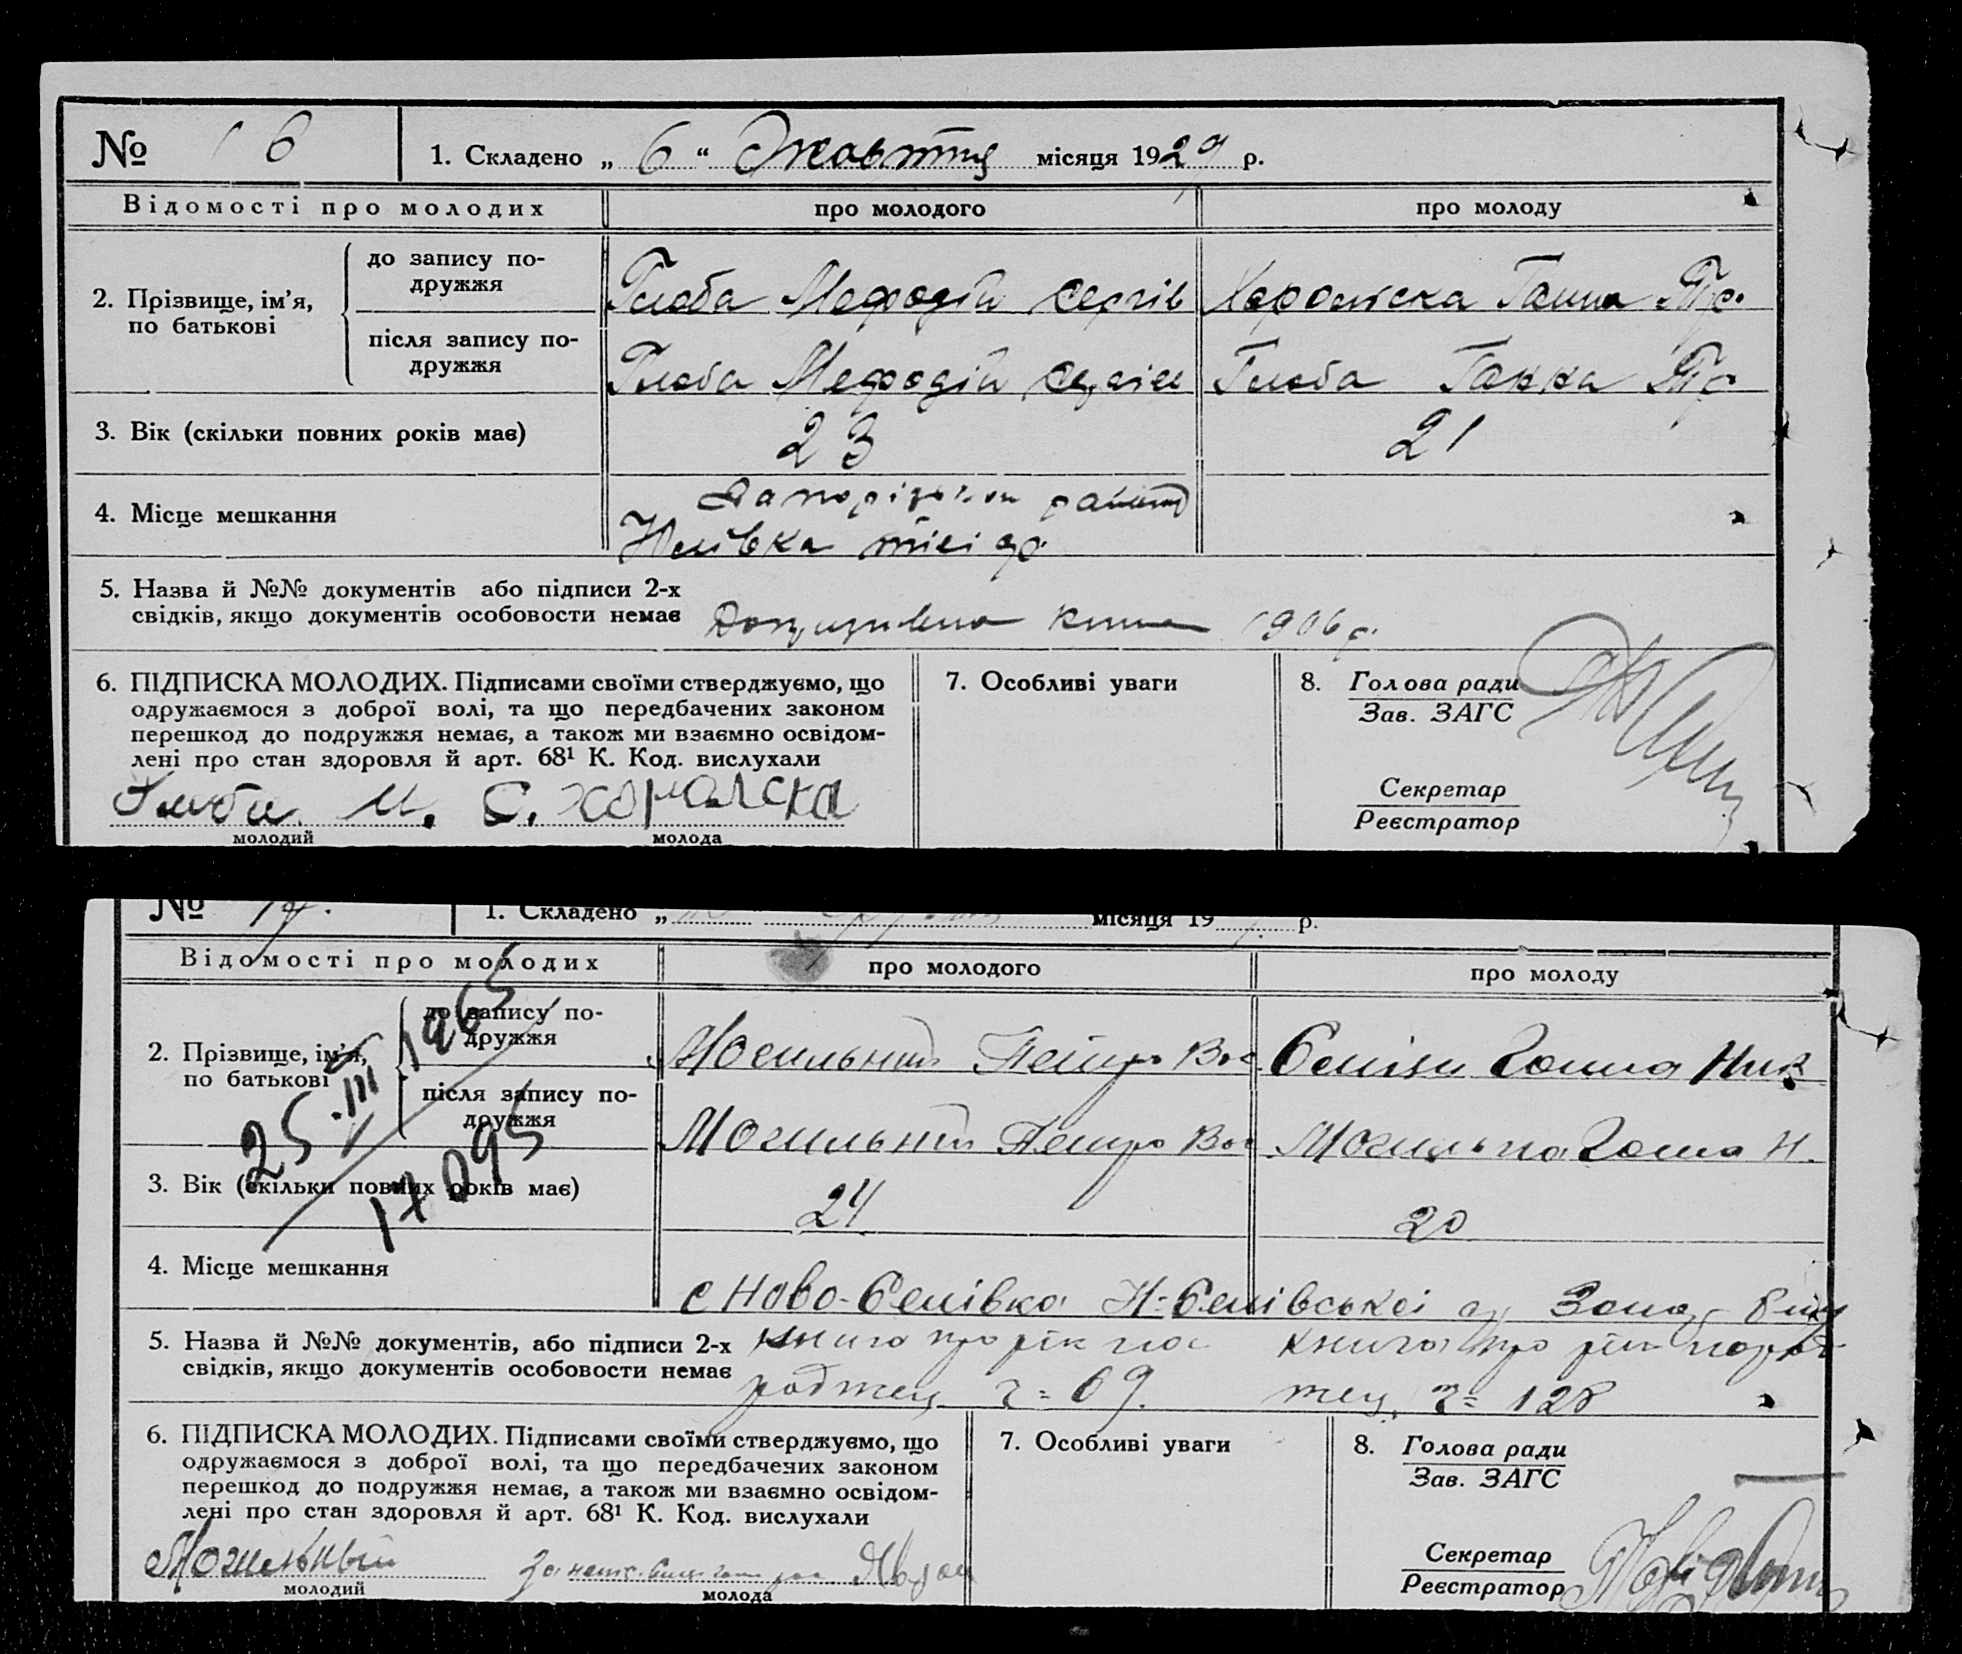 № 16 1. Складено „ 6 “ Жовтня місяця 1929 р.
Відомості про молодих про молодого про молоду
2. Прізвище, ім’я, по батькові
до запису по-
дружжя
Глоба Мефодій Сергів Хорольска Ганна Гр.
після запису по-
дружжя
Глоба Мефодій Сергів Глоба Ганна Гр
3. Вік (скільки повних років має) 23 21
4. Місце мешкання
Запорізького району
Юлівка
5. Назва й №№ документів або підписи 2-х
свідків, якщо документів особовости немає 1906 р.
6. ПІДПИСКА МОЛОДИХ. Підписами своїми стверджуємо, що
одружаємося з доброї волі, та що передбачених законом
перешкод до подружжя немає, а також ми взаємно освідом-
лені про стан здоровля й арт. 68¹ К. Код. вислухали
Глоба М. Г. Хоролска
молодий молода
7. Особливі уваги
8. Голова ради
Зав. ЗАГС
Секретар
Реєстратор
№ 17. 1. Складено „ місяця 19 р.
Відомості про молодих про молодого про молоду
2. Прізвище, ім’я,
по батькові
до запису по-
дружжя
Могильний Петро Вас Беліци Ганна Ник
після запису по-
дружжя
Могильний Петро Вас Могильна Ганна Н.
25.III 1965
17095
3. Вік (скільки повних років має) 24 20
4. Місце мешкання
с Ново-Белівка Н-Белівської
5. Назва й №№ документів, або підписи 2-х
свідків, якщо документів особовости немає
книга про рік на книга про рік народ
роджен ч= 69. жен, ч= 128
6. ПІДПИСКА МОЛОДИХ. Підписами своїми стверджуємо, що
одружаємося з доброї волі, та що передбачених законом
перешкод до подружжя немає, а також ми взаємно освідом-
лені про стан здоровля й арт. 68¹ К. Код. вислухали
Могильный
молодий молода
7. Особливі уваги
8. Голова ради
Зав. ЗАГС
Секретар
Реєстратор